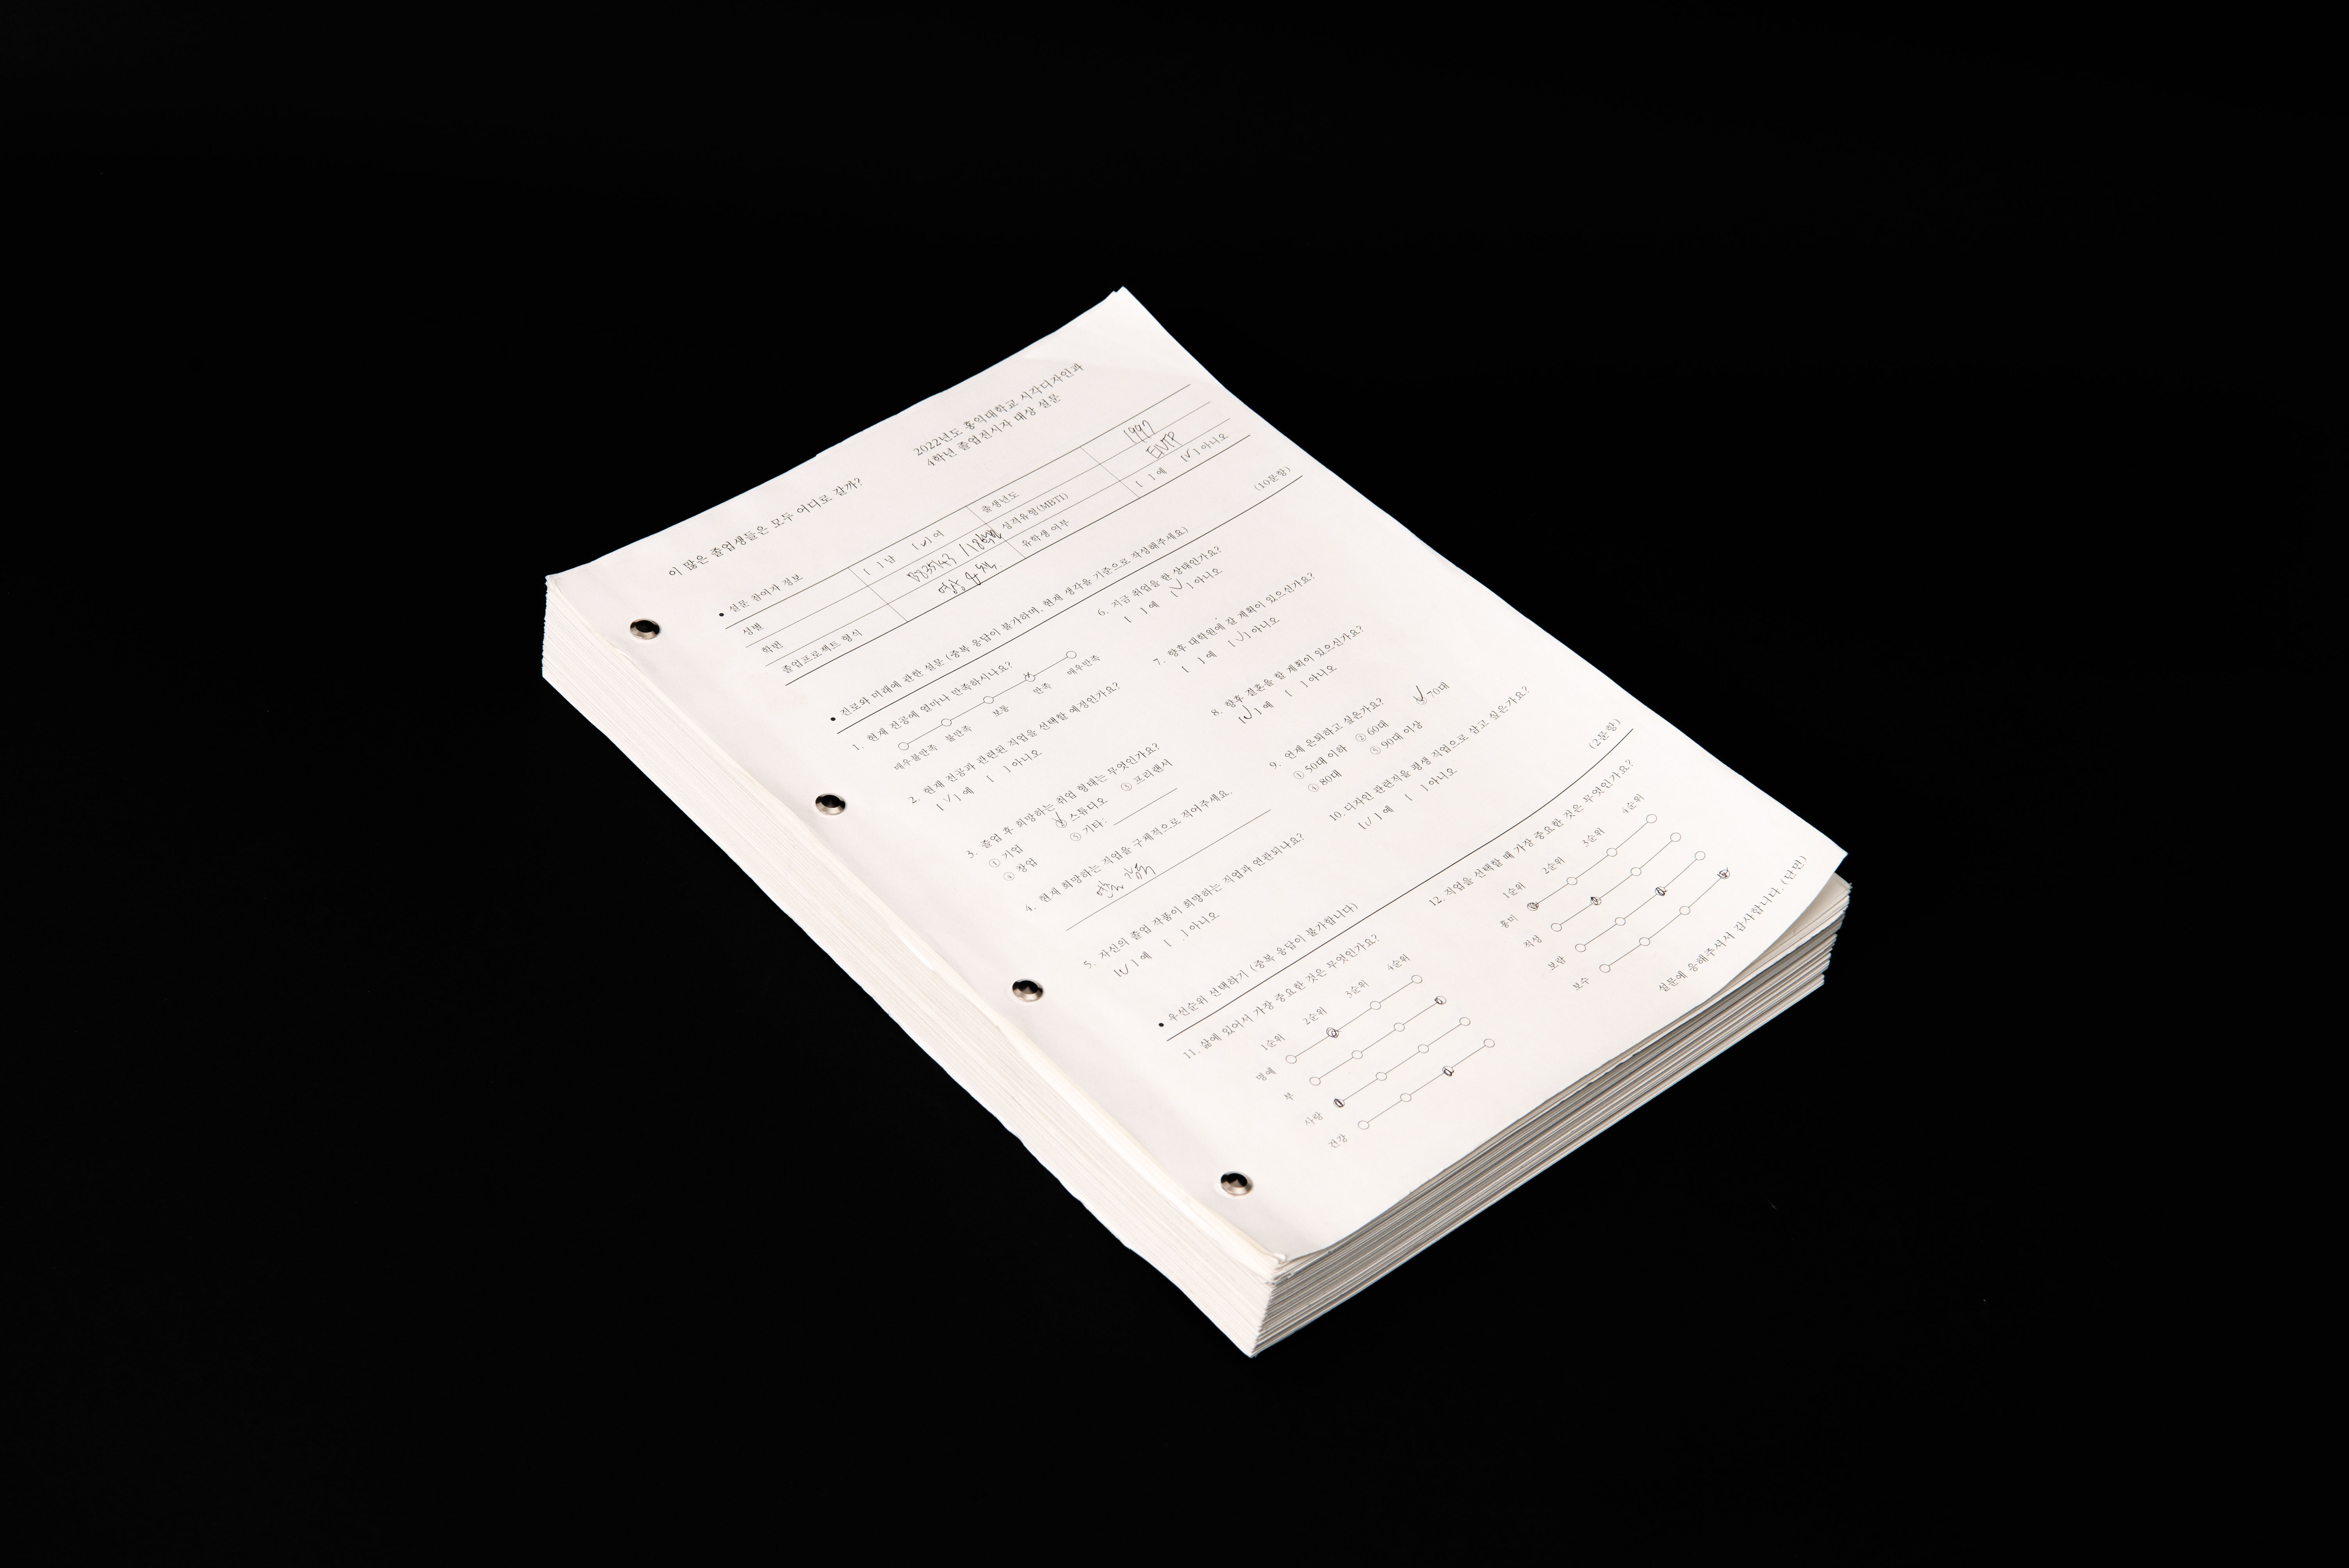 이 많은 졸업생들은 모두 어디로 갈까?
2022년도 홍익대학교 시각디자인과
4학년 졸업전시자 대상 설문
• 설문 참여자 정보
성별 [ ] 남 [✓] 여 출생년도 1997
학번 성격유형(MBTI) ENTP
졸업프로젝트 형식 영상 유학생 여부 [ ] 예 [✓] 아니오
• 진로와 미래에 관한 설문 (중복 응답이 불가하며, 현재 생각을 기준으로 작성해주세요) (10문항)
1. 현재 전공에 얼마나 만족하시나요?
매우불만족 불만족 보통 만족 매우만족
2. 현재 전공과 관련된 직업을 선택할 예정인가요?
[✓] 예 [ ] 아니오
3. 졸업 후 희망하는 취업 형태는 무엇인가요?
① 기업 ② 스튜디오 ③ 프리랜서
④ 창업 ⑤ 기타:
4. 현재 희망하는 직업을 구체적으로 적어주세요.
영화 감독
5. 자신의 졸업 작품이 희망하는 직업과 연관되나요?
[✓] 예 [ ] 아니오
6. 지금 취업을 한 상태인가요?
[ ] 예 [✓] 아니오
7. 향후 대학원에 갈 계획이 있으신가요?
[ ] 예 [✓] 아니오
8. 향후 결혼을 할 계획이 있으신가요?
[✓] 예 [ ] 아니오
9. 언제 은퇴하고 싶은가요?
① 50대 이하 ② 60대 ③ 70대
④ 80대 ⑤ 90대 이상
10. 디자인 관련직을 평생 직업으로 삼고 싶은가요?
[✓] 예 [ ] 아니오
• 우선순위 선택하기 (중복 응답이 불가합니다) (2문항)
11. 삶에 있어서 가장 중요한 것은 무엇인가요?
1순위 2순위 3순위 4순위
명예
부
사랑
건강
12. 직업을 선택할 때 가장 중요한 것은 무엇인가요?
1순위 2순위 3순위 4순위
흥미
적성
보람
보수
설문에 응해주셔서 감사합니다. (단면)